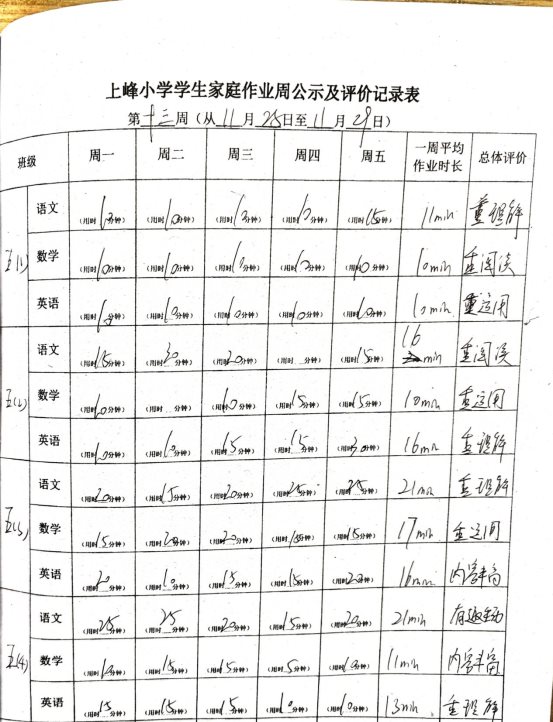 上峰小学学生家庭作业周公示及评价记录表
第十三周（从11月25日至11月29日）
班级 周一 周二 周三 周四 周五 一周平均作业时长 总体评价
五(1) 语文 (用时10分钟) (用时10分钟) (用时10分钟) (用时10分钟) (用时15分钟) 11min 重理解
数学 (用时10分钟) (用时10分钟) (用时10分钟) (用时10分钟) (用时10分钟) 10min 重阅读
英语 (用时10分钟) (用时10分钟) (用时10分钟) (用时10分钟) (用时10分钟) 10min 重运用
五(2) 语文 (用时15分钟) (用时20分钟) (用时20分钟) (用时 分钟) (用时15分钟) 16min 重阅读
数学 (用时10分钟) (用时 分钟) (用时10分钟) (用时15分钟) (用时15分钟) 10min 重运用
英语 (用时10分钟) (用时10分钟) (用时15分钟) (用时15分钟) (用时30分钟) 16min 重理解
语文 (用时20分钟) (用时15分钟) (用时20分钟) (用时25分钟) (用时25分钟) 21min 重理解
数学 (用时15分钟) (用时20分钟) (用时20分钟) (用时15分钟) (用时15分钟) 17min 重运用
英语 (用时20分钟) (用时10分钟) (用时15分钟) (用时15分钟) (用时20分钟) 16min 内容丰富
五(4) 语文 (用时25分钟) (用时25分钟) (用时20分钟) (用时15分钟) (用时20分钟) 21min 有趣生动
数学 (用时10分钟) (用时15分钟) (用时15分钟) (用时5分钟) (用时10分钟) 11min 内容丰富
英语 (用时15分钟) (用时15分钟) (用时15分钟) (用时10分钟) (用时10分钟) 13min 重理解